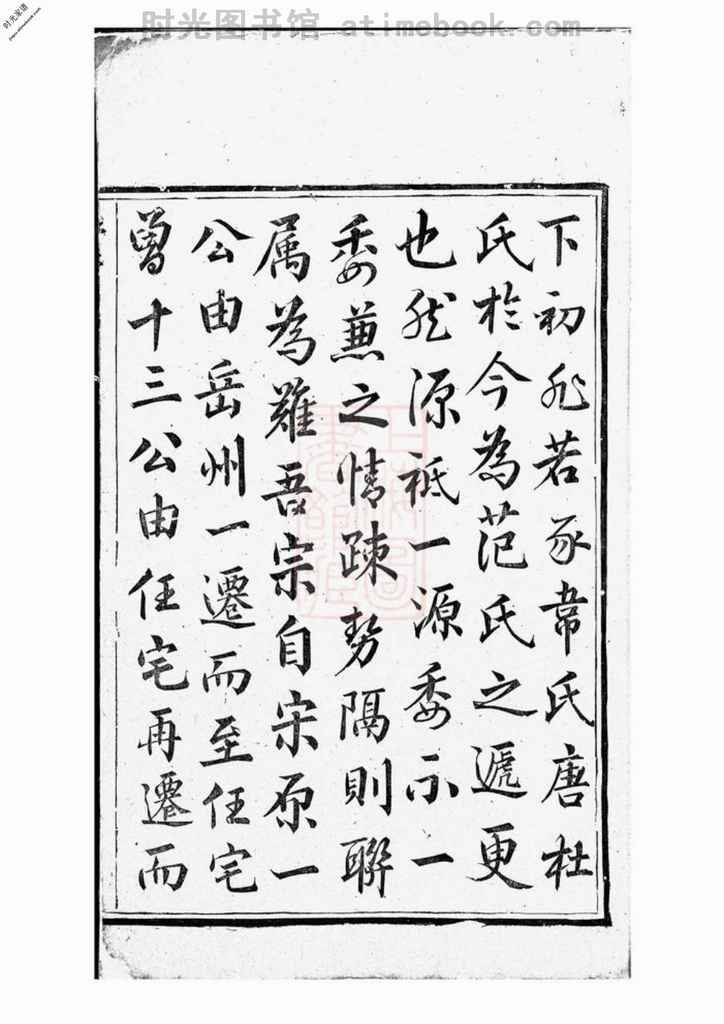 时光图书馆 atimebook.com
时光家谱
下初非若豕韋氏唐杜
氏於今為范氏之遞更
也然源祗一源委不一
委蕙之情疎勢隔則聯
属為難吾宗自宋原一
公由岳州一遷而至任宅
曾十三公由任宅再遷而